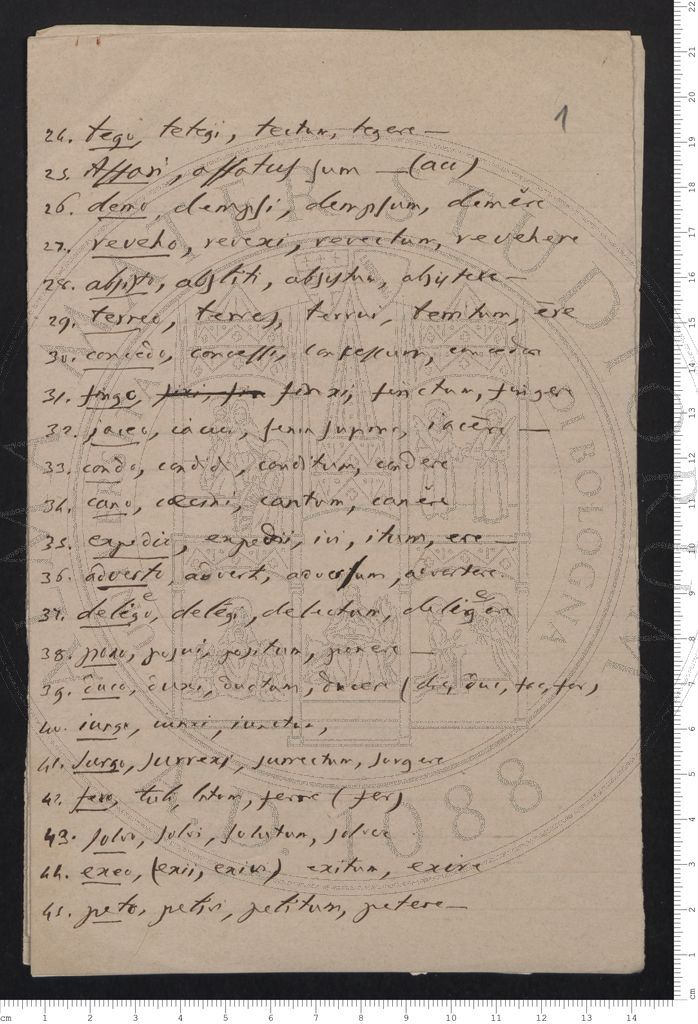 1
24. tego, tetegi, tectum, tegere —
25. Affari, affatus sum — (acc)
26. demo, dempsi, dempsum, demĕre
27. reveho, revexi, revectum, revehere
28. absisto, abstiti, absistere —
29. terreo, terres, terrui, territum, ēre
30. concedo, concessi, concessum, concedere
31. fingo, finxi, finctum, fingere
32. jaceo, iacui, sine supino, iacēre —
33. condo, condidi, conditum, condere
34. cano, cecini, cantum, canĕre
35. expedio, expedii, ivi, itum, ere —
36. adverto, adverti, adversum, advertere.
37. deligo, delegi, delectum, deligere
38. pono, posui, positum, ponere —
39. duco, duxi, ductum, ducere (dic, duc, fac, fer)
40. iungo, iunxi, iunctum,
41. Surgo, surrexi, surrectum, surgere
42. fero, tuli, latum, ferre (fer)
43. solvo, solvi, solutum, solvere
44. exeo, (exii, exivi) exitum, exire
45. peto, petivi, petitum, petere —
ALMA MATER STUDIORUM
BOLOGNA
A.D. 1088
cm 1 2 3 4 5 6 7 8 9 10 11 12 13 14
22 21 20 19 18 17 16 15 14 13 12 11 10 9 8 7 6 5 4 3 2 1 cm